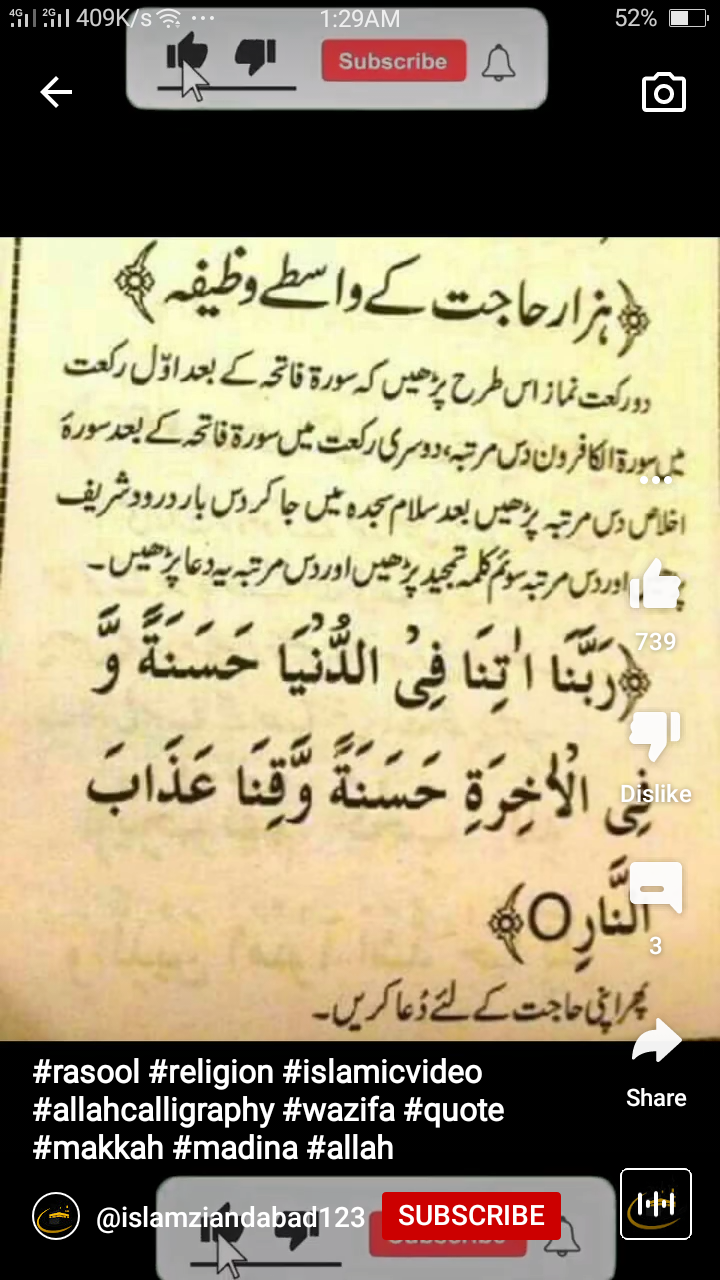 4G 2G 409K/s ... 1:29AM 52%
Subscribe
ہزار حاجت کے واسطے وظیفہ
دو رکعت نماز اس طرح پڑھیں کہ سورۃ فاتحہ کے بعد اوّل رکعت
میں سورۃ الکافرون دس مرتبہ، دوسری رکعت میں سورۃ فاتحہ کے بعد سورۂ
اخلاص دس مرتبہ پڑھیں بعد سلام سجدہ میں جا کر دس بار درود شریف
اور دس مرتبہ سوئم کلمہ تمجید پڑھیں اور دس مرتبہ یہ دعا پڑھیں۔
رَبَّنَا اٰتِنَا فِی الدُّنْیَا حَسَنَةً وَّ
فِی الْاٰخِرَةِ حَسَنَةً وَّقِنَا عَذَابَ
النَّارِ
پھر اپنی حاجت کے لئے دُعا کریں۔
739
Dislike
3
Share
#rasool #religion #islamicvideo
#allahcalligraphy #wazifa #quote
#makkah #madina #allah
@islamziandabad123 SUBSCRIBE
Subscribe